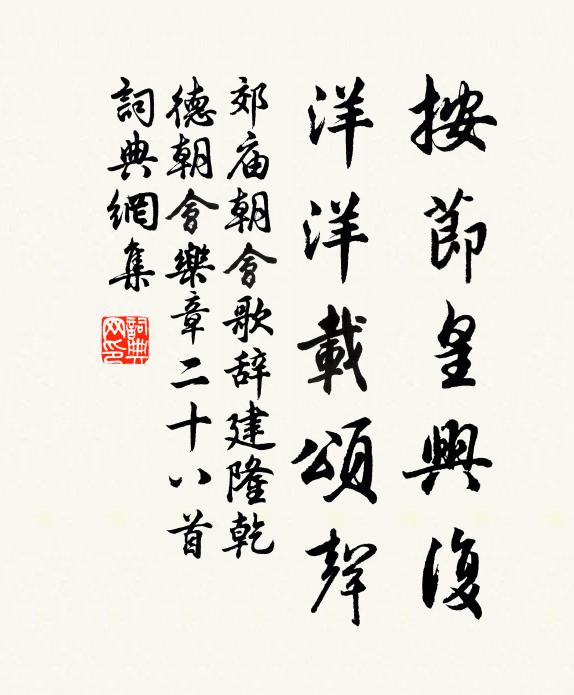 按節皇輿復
洋洋載頌聲
郊庙朝會歌辞建隆乾
德朝會樂章二十八首
詞典網集
詞典网印